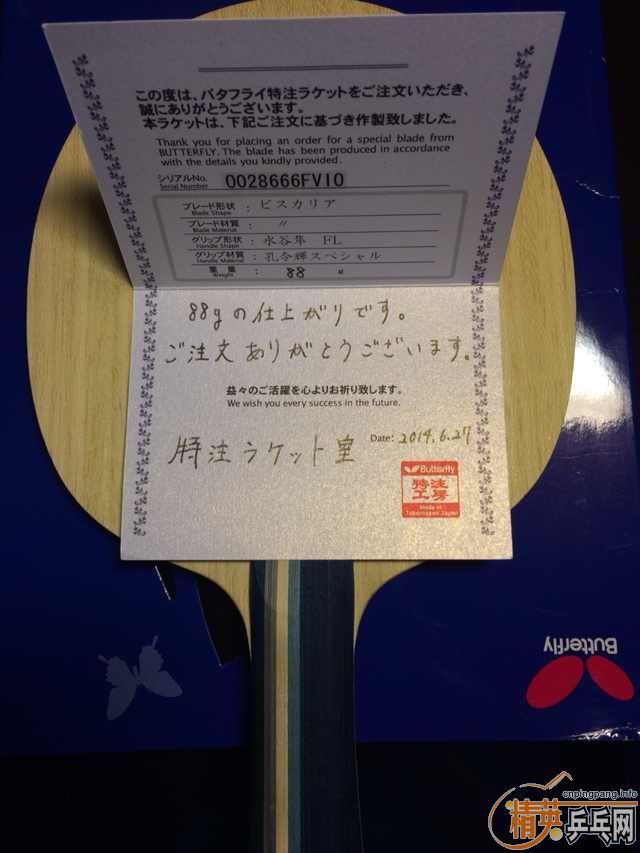 この度は、バタフライ特注ラケットをご注文いただき、
誠にありがとうございます。
本ラケットは、下記ご注文に基づき作製致しました。
Thank you for placing an order for a special blade from
BUTTERFLY. The blade has been produced in accordance
with the details you kindly provided.
シリアルNo.
Serial Number
0028666FV10
ブレード形状 : ビスカリア
Blade Shape
ブレード材質 : 〃
Blade Material
グリップ形状 : 水谷隼 FL
Handle Shape
グリップ材質 : 孔令輝スペシャル
Handle Material
重量 : 88
Weight
88gの仕上がりです。
ご注文ありがとうございます。
益々のご活躍を心よりお祈り致します。
We wish you every success in the future.
Date: 2014.6.27
特注ラケット室
Butterfly
特注
工房
Made in
Tokorozawa Japan
Butterfly
cnpingpang.info
精英乒乓网